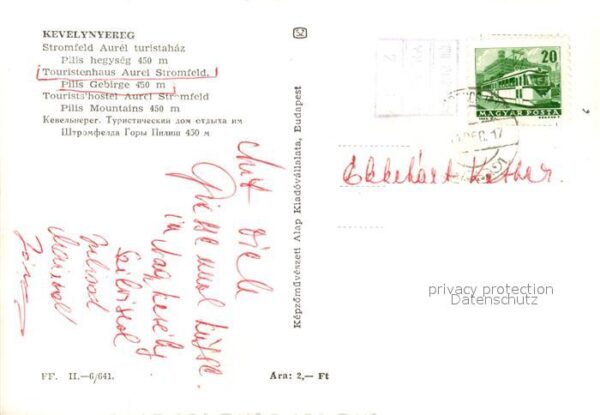 KEVÉLYNYEREG
Stromfeld Aurél turistaház
Pilis hegység 450 m
Touristenhaus Aurel Stromfeld,
Pilis Gebirge 450 m
Tourists'hostel Aurel Stromfeld
Pilis Mountains 450 m
Кевельнерег. Туристический дом отдыха им
Штромфелда Горы Пилиш 450 м
Mit viele
Grüsse und Küsse
in
FF. II.—6/641.
Ára: 2,— Ft
Képzőművészeti Alap Kiadóvállalata, Budapest
20
MAGYAR POSTA
DEC. 17
Ekkehart
privacy protection
Datenschutz